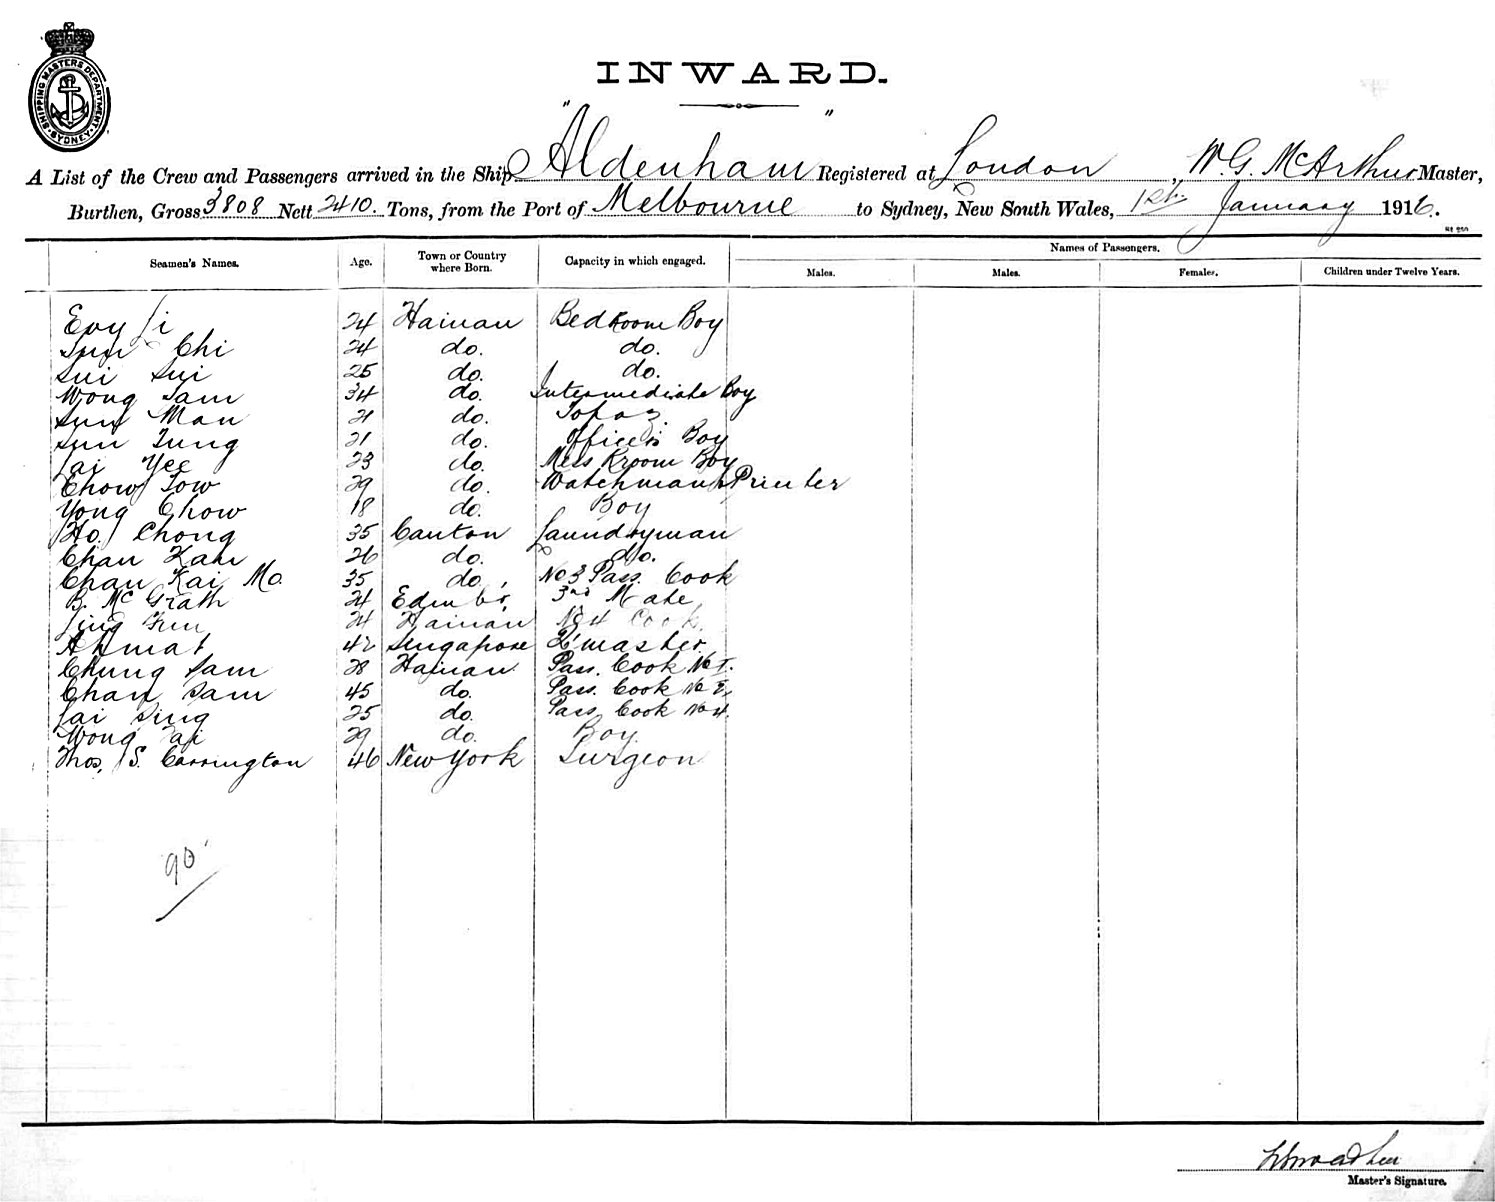 SHIPPING MASTERS DEPARTMENT · SYDNEY ·
INWARD.
A List of the Crew and Passengers arrived in the Ship "Aldenham" Registered at London, W. G. McArthur Master,
Burthen, Gross 3808 Nett 2410. Tons, from the Port of Melbourne to Sydney, New South Wales, 1st January 1916.
Names of Passengers.
Seamen's Names. Age. Town or Country where Born. Capacity in which engaged. Males. Males. Females. Children under Twelve Years.
Evy Li 24 Hainan Bedroom Boy
Chi 24 do. do.
Sui Sui 25 do. do.
Wong Sam 34 do. Intermediate Boy
Sun Man 21 do. Topaz
Sun Tung 21 do. Officers Boy
Lai Yee 23 do. Mess Rroom Boy
Chow Tow 29 do. Watchman & Printer
Yong Chow 18 do. Boy
Ho Chong 35 Canton Laundryman
Chan Kan 26 do. do.
Chan Kai Mo 35 do. No 3 Pass. Cook
B. McGrath 24 Edinbo, 3rd Mate
Ling 24 Hainan No 4 Cook.
Ahmat 42 Singapore Q'master.
Chung Sam 28 Hainan Pass. Cook No 1.
Chan Sam 45 do. Pass. Cook No 2,
Lai Sing 25 do. Pass. Cook No 4.
Wong Tai 29 do. Boy.
Thos. S. Carrington 46 New York Surgeon
90
Master's Signature.